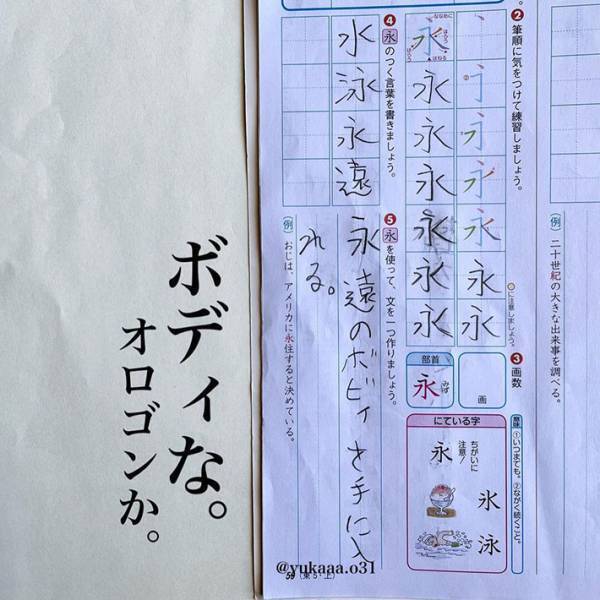 (例) 二十世紀の大きな出来事を調べる。
❷ 筆順に気をつけて練習しましょう。
○に注意しましょう。
永
永
ななめに
はらう
はねる
永
永
永
永
永
永
永
❸ 画数
画
部首
永 みず
意味 ①いつまでも。②ながく続くこと。
にている字
ちがいに
注意!
氷
泳
永
❹ 永のつく言葉を書きましょう。
水泳永遠
❺ 永を使って、文を一つ作りましょう。
永遠のボビィを手に入
れる。
(例) おじは、アメリカに永住すると決めている。
ボディな。
オロゴンか。
@yukaaa.o31
59 (東5・上)